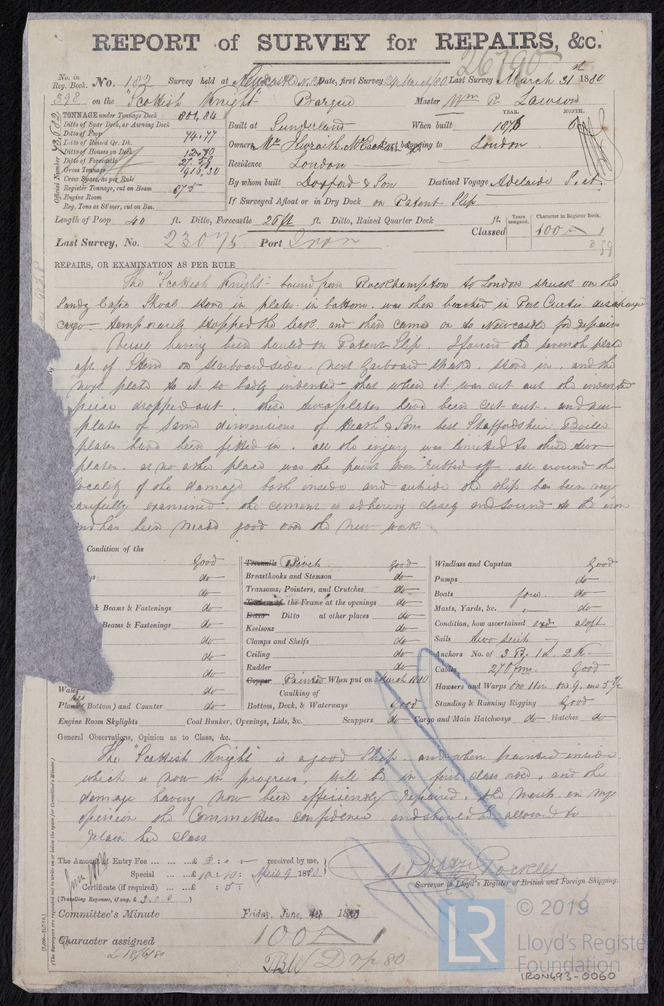 REPORT of SURVEY for REPAIRS, &c.
26790
No. in Reg. Book. No. 182 Survey held at Newcastle N.S.W. Date, first Survey Last Survey March 31st 1880
398 on the "Scottish Knight" Barque Master Wm P. Lawson
TONNAGE under Tonnage Deck 801.84
Ditto of Spar Deck, or Awning Deck
Ditto of Poop 74.77
Ditto of Raised Qr. Dk.
Ditto of Houses on Deck 12.90
Ditto of Forecastle
Gross Tonnage 916.30
Gross Space, as per Rule
Register Tonnage, cut on Beam 875
Engine Room
Reg. Tons as St'mer, cut on Bm.
Official Number
YEAR. MONTH.
Built at Sunderland When built 1876 6
Owners belonging to London
Residence London
By whom built Doxford & Son Destined Voyage Adelaide Port
If Surveyed Afloat or in Dry Dock on Patent Slip
Length of Poop 40 ft. Ditto, Forecastle 25 ft. Ditto, Raised Quarter Deck ft.
Years assigned. Character in Register Book.
Last Survey, No. 23075 Port Iron Classed 100 A 1
REPAIRS, OR EXAMINATION AS PER RULE
The "Scottish Knight" bound from Rockhampton to London struck on the
Sandy Cape Shoal, stove in plates in bottom. was then beached in Port Curtis discharged
cargo temporarily stopped the leak and then came on to Newcastle for repairs
Vessel having been hauled on Patent Slip. I found the seventh plate
aft of Stem on starboard side, next Garboard strake, stove in, and the
next plate to it so badly indented that when it was cut out the indented
piece dropped out. these two plates have been cut out and new
plates of same dimensions of Heath & Sons best Staffordshire Boiler
plates have been fitted in. all the injury was limited to these two
plates, as no other place was the paint even rubbed off. all around the
locality of the damage both inside and outside the ship has been very
carefully examined. the cement is adhering closely and sound to the iron
and has been made good over the new work.
Condition of the
Good
do
k Beams & Fastenings do
do
Beams & Fastenings do
do
do
do
do
Wales do
Planks (Bottom) and Counter do
Engine Room Skylights
Treenails Rivets Good
Breasthooks and Stemson do
Transoms, Pointers, and Crutches do
the Frame at the openings do
Ditto at other places do
Keelsons do
Clamps and Shelfs do
Ceiling do
Rudder do
Copper Painted When put on March 1880
Caulking of
Bottom, Deck, & Waterways Good
Coal Bunker, Openings, Lids, &c. Scuppers do Cargo and Main Hatchways do Hatches do
Windlass and Capstan Good
Pumps do
Boats four do
Masts, Yards, &c. do
Condition, how ascertained aloft
Sails two suits do
Anchors No. of 3 B, 1 S, 2 K
Cables 270 fms. Good
Hawsers and Warps
Standing & Running Rigging Good
General Observations, Opinion as to Class, &c.
The "Scottish Knight" is a good Ship. and when painted inside
which is now in progress, will be in first class order, and the
damage having now been efficiently repaired. she merits in my
opinion the Committees confidence and should be allowed to
retain her class
The Amount of Entry Fee ... ... ...£ : - : - received by me,
Special ... ...£ 10 : 10 : 1880
Certificate (if required) ... ...£ : 5 :
(Travelling Expenses, if any, £ )
Surveyor to Lloyd's Register of British and Foreign Shipping.
Committee's Minute Friday, June, 1880
Character assigned 100 A 1
© 2019
LR
Lloyd's Register
Foundation
IRON493-0060